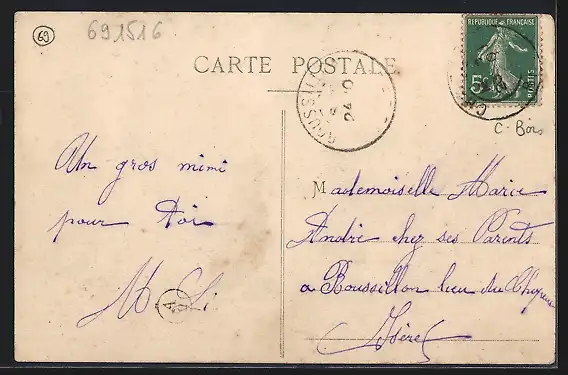 69
691516
CARTE POSTALE
REPUBLIQUE FRANÇAISE
5c
POSTES
ROUSSILLON
24
C. Bois
Un gros mimi
pour Toi
M Li
A
Mademoiselle Marie
André chez ses Parents
a Roussillon lieu du
Isère